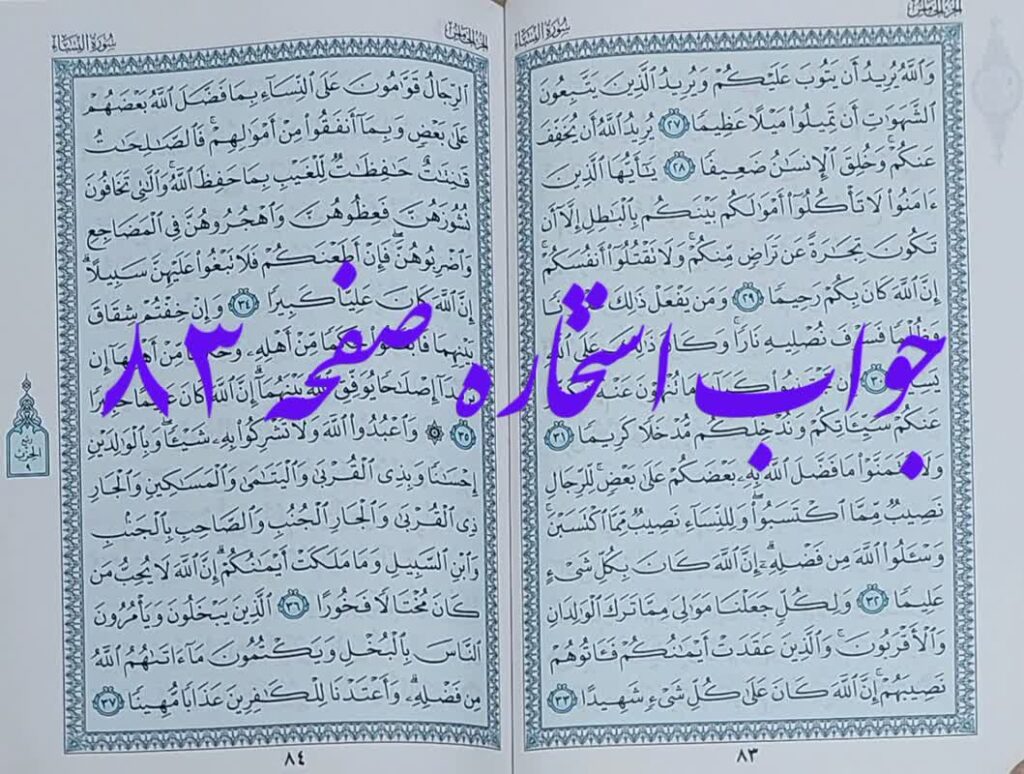 سورة النساء
الجزء الخامس
وَٱللَّهُ يُرِيدُ أَن يَتُوبَ عَلَيْكُمْ وَيُرِيدُ ٱلَّذِينَ يَتَّبِعُونَ
ٱلشَّهَوَٰتِ أَن تَمِيلُوا۟ مَيْلًا عَظِيمًا ٢٧ يُرِيدُ ٱللَّهُ أَن يُخَفِّفَ
عَنكُمْ وَخُلِقَ ٱلْإِنسَٰنُ ضَعِيفًا ٢٨ يَٰٓأَيُّهَا ٱلَّذِينَ
ءَامَنُوا۟ لَا تَأْكُلُوٓا۟ أَمْوَٰلَكُم بَيْنَكُم بِٱلْبَٰطِلِ إِلَّآ أَن
تَكُونَ تِجَٰرَةً عَن تَرَاضٍ مِّنكُمْ وَلَا تَقْتُلُوٓا۟ أَنفُسَكُمْ
إِنَّ ٱللَّهَ كَانَ بِكُمْ رَحِيمًا ٢٩ وَمَن يَفْعَلْ ذَٰلِكَ
نُصْلِيهِ نَارًا وَكَانَ ذَٰلِكَ عَلَى ٱللَّهِ
٣٠ تُنْهَوْنَ عَنْهُ
عَنكُمْ سَيِّـَٔاتِكُمْ وَنُدْخِلْكُم مُّدْخَلًا كَرِيمًا ٣١
مَا فَضَّلَ ٱللَّهُ بِهِۦ بَعْضَكُمْ عَلَىٰ بَعْضٍ لِّلرِّجَالِ
نَصِيبٌ مِّمَّا ٱكْتَسَبُوا۟ وَلِلنِّسَآءِ نَصِيبٌ مِّمَّا ٱكْتَسَبْنَ
وَسْـَٔلُوا۟ ٱللَّهَ مِن فَضْلِهِۦٓ إِنَّ ٱللَّهَ كَانَ بِكُلِّ شَىْءٍ
عَلِيمًا ٣٢ وَلِكُلٍّ جَعَلْنَا مَوَٰلِىَ مِمَّا تَرَكَ ٱلْوَٰلِدَانِ
وَٱلْأَقْرَبُونَ وَٱلَّذِينَ عَقَدَتْ أَيْمَٰنُكُمْ فَـَٔاتُوهُمْ
نَصِيبَهُمْ إِنَّ ٱللَّهَ كَانَ عَلَىٰ كُلِّ شَىْءٍ شَهِيدًا ٣٣
٨٣
جواب استخاره صفحه ۸۳
الجزء الخامس
سورة النساء
ٱلرِّجَالُ قَوَّٰمُونَ عَلَى ٱلنِّسَآءِ بِمَا فَضَّلَ ٱللَّهُ بَعْضَهُمْ
عَلَىٰ بَعْضٍ وَبِمَآ أَنفَقُوا۟ مِنْ أَمْوَٰلِهِمْ فَٱلصَّٰلِحَٰتُ
قَٰنِتَٰتٌ حَٰفِظَٰتٌ لِّلْغَيْبِ بِمَا حَفِظَ ٱللَّهُ وَٱلَّٰتِى تَخَافُونَ
نُشُوزَهُنَّ فَعِظُوهُنَّ وَٱهْجُرُوهُنَّ فِى ٱلْمَضَاجِعِ
وَٱضْرِبُوهُنَّ فَإِنْ أَطَعْنَكُمْ فَلَا تَبْغُوا۟ عَلَيْهِنَّ سَبِيلًا
إِنَّ ٱللَّهَ كَانَ عَلِيًّا كَبِيرًا ٣٤ وَإِنْ خِفْتُمْ شِقَاقَ
بَيْنِهِمَا مِّنْ أَهْلِهِۦ مِّنْ أَهْلِهَآ إِن
إِصْلَٰحًا يُوَفِّقِ ٱللَّهُ بَيْنَهُمَآ إِنَّ ٱللَّهَ كَانَ
٣٥ وَٱعْبُدُوا۟ ٱللَّهَ وَلَا تُشْرِكُوا۟ بِهِۦ شَيْـًٔا وَبِٱلْوَٰلِدَيْنِ
إِحْسَٰنًا وَبِذِى ٱلْقُرْبَىٰ وَٱلْيَتَٰمَىٰ وَٱلْمَسَٰكِينِ وَٱلْجَارِ
ذِى ٱلْقُرْبَىٰ وَٱلْجَارِ ٱلْجُنُبِ وَٱلصَّاحِبِ بِٱلْجَنۢبِ
وَٱبْنِ ٱلسَّبِيلِ وَمَا مَلَكَتْ أَيْمَٰنُكُمْ إِنَّ ٱللَّهَ لَا يُحِبُّ مَن
كَانَ مُخْتَالًا فَخُورًا ٣٦ ٱلَّذِينَ يَبْخَلُونَ وَيَأْمُرُونَ
ٱلنَّاسَ بِٱلْبُخْلِ وَيَكْتُمُونَ مَآ ءَاتَىٰهُمُ ٱللَّهُ
مِن فَضْلِهِۦ وَأَعْتَدْنَا لِلْكَٰفِرِينَ عَذَابًا مُّهِينًا ٣٧
ربع
الحزب
٩
٨٤